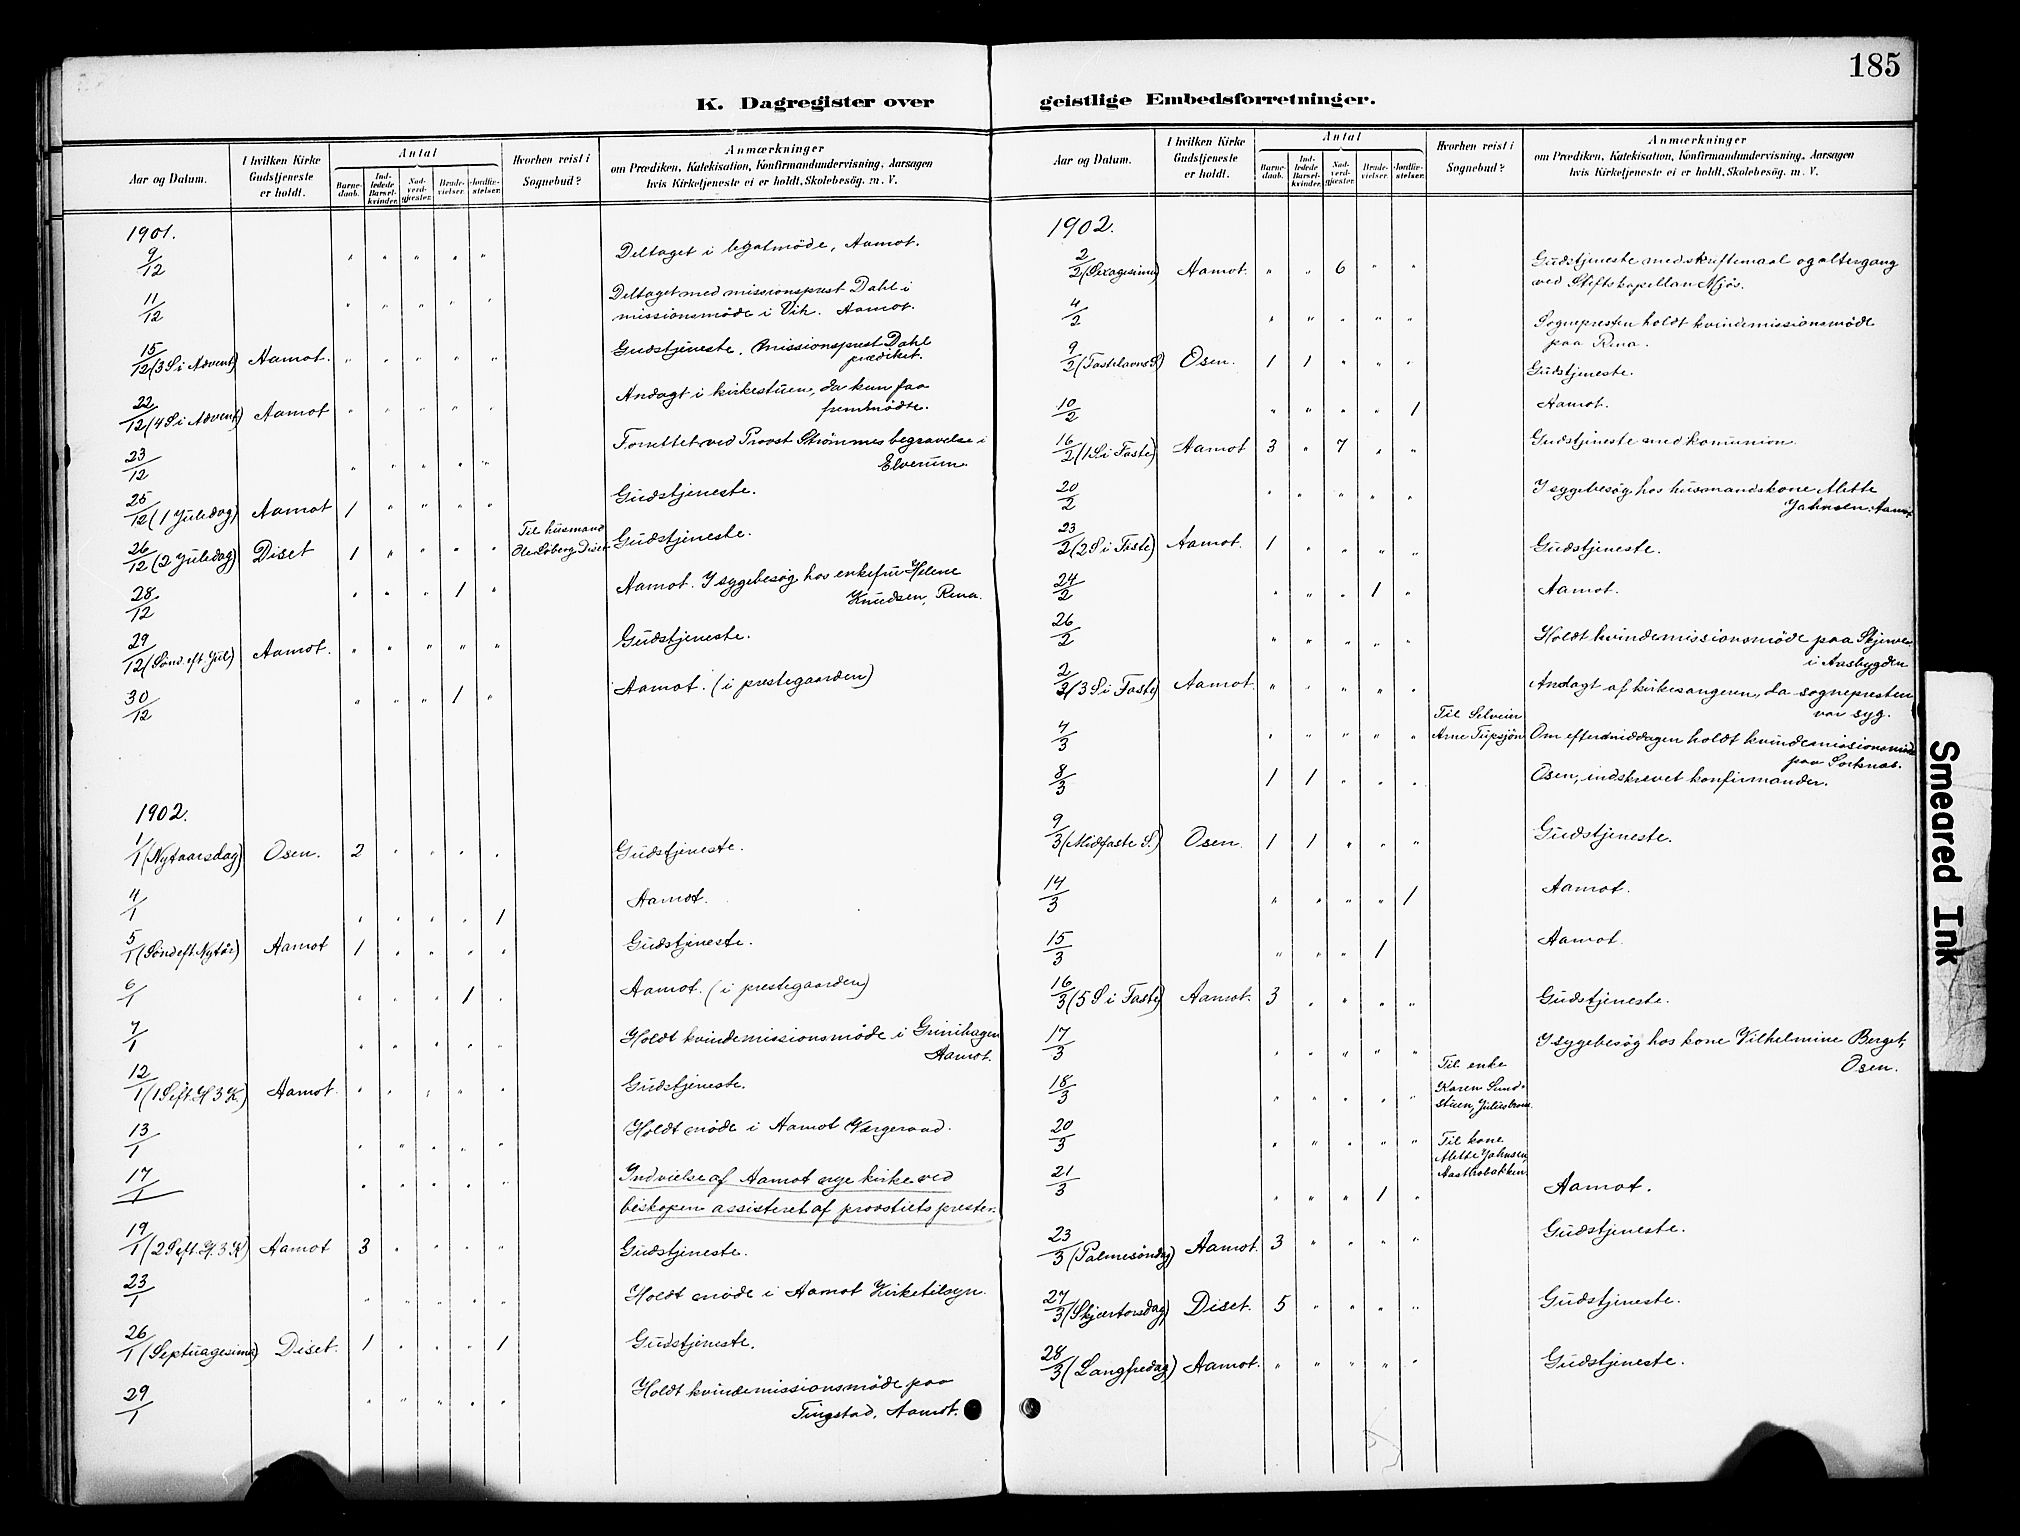 185
K. Dagregister over geistlige Embedsforretninger.
Aar og Datum.
I hvilken Kirke
Gudstjeneste
er holdt.
Antal
Barne-
daab.
Ind-
ledede
Barsel-
kvinder.
Nad-
verd-
gjester.
Brude-
vielser.
Jordfæ-
stelser.
Hvorhen reist i
Sognebud?
Anmærkninger
om Prædiken, Katekisation, Konfirmandundervisning, Aarsagen
hvis Kirketjeneste ei er holdt, Skolebesøg. m. V.
1901.
9/12 " " " " " Deltaget i legatmöde, Aamot.
11/12 " " " " " Deltaget med missionsprest Dahl i
missionsmöde i Vik. Aamot.
15/12 (3 S i Advent) Aamot. " " " " " Gudstjeneste. Missionsprest Dahl
prædiket.
22/12 (4 S i Advent) Aamot " " " " " Andagt i kirkestuen, da kun faa
fremmödte.
23/12 " " " " " Forrettet ved Provst Strömmes begravelse i
Elverum.
25/12 (1 Juledag) Aamot 1 " " " " Gudstjeneste.
26/12 (2 Juledag) Diset 1 " " " " Til husmand
Ole Loberg, Diset Gudstjeneste.
28/12 " " " 1 " Aamot. I sygebesög hos enkefru Helene
Knudsen, Rena.
29/12 (Sönd. eft. Jul) Aamot. " " " " " Gudstjeneste.
30/12 " " " 1 " Aamot. (i prestegaarden)
1902.
1/1 (Nytaarsdag) Osen. 2 " " " " Gudstjeneste.
4/1 " " " " 1 Aamot.
5/1 (Sönd eft. Nytår) Aamot 1 " " " " Gudstjeneste.
6/1 " " " 1 " Aamot. (i prestegaarden)
7/1 " " " " " Holdt kvindemissionsmöde i Grinihagen
Aamot.
12/1 (1 S eft. H 3 K.) Aamot. " " " " " Gudstjeneste.
13/1 " " " " " Holdt möde i Aamot Værgeraad.
17/1 " " " " " Indvielse af Aamot nye kirke ved
biskopen assisteret af provstiets prester.
19/1 (2 S eft. H. 3. K) Aamot 3 " " " " Gudstjeneste.
23/1 " " " " " Holdt möde i Aamot Kirketilsyn.
26/1 (Septuagesima) Diset. 1 " " " 1 Gudstjeneste.
29/1 " " " " " Holdt kvindemissionsmöde paa
Tingstad, Aamot.
Aar og Datum.
I hvilken Kirke
Gudstjeneste
er holdt.
Antal
Barne-
daab.
Ind-
ledede
Barsel-
kvinder.
Nad-
verd-
gjester.
Brude-
vielser.
Jordfæ-
stelser.
Hvorhen reist i
Sognebud?
Anmærkninger
om Prædiken, Katekisation, Konfirmandundervisning, Aarsagen
hvis Kirketjeneste ei er holdt, Skolebesøg. m. V.
1902.
2/2 (Sexagesima) Aamot. " " 6 " " Gudstjeneste med skriftemaal og altergang
ved Stiftskapellan Mjös.
4/2 " " " " " Sognepresten holdt kvindemissionsmöde
paa Rena.
9/2 (Fastelavns S) Osen. 1 1 " " " Gudstjeneste.
10/2 " " " " 1 Aamot.
16/2 (1 S. i Faste) Aamot 3 " 7 " " Gudstjeneste med komunion.
20/2 " " " " " I sygebesög hos husmandskone Alette
Jahnsen, Aamot.
23/2 (2 S i Faste) Aamot. 1 " " " " Gudstjeneste.
24/2 " " " 1 " Aamot.
26/2 " " " " " Holdt kvindemissionsmöde paa Skjerve
i Aasbygden
2/3 (3 S i Faste) Aamot. " " " " " Andagt af kirkesangeren, da sognepresten
var syg.
7/3 " " " " " Til Selveier
Arne Tupsjön Om eftermiddagen holdt kvindemissionsmöde
paa Sorknæs.
8/3 1 1 " " " Osen, indskrevet konfirmander.
9/3 (Midfaste S.) Osen. 1 1 " " " Gudstjeneste.
14/3 " " " " 1 Aamot.
15/3 " " " 1 Aamot.
16/3 (5 S i Faste) Aamot. 3 " " " " Gudstjeneste.
17/3 " " " " " I sygebesög hos kone Vilhelmine Berget,
Osen.
18/3 " " " " " Til enke
Karen Sund-
stuen, Julusbroen
20/3 " " " " " Til kone
Alette Jahnsen,
Aastrobakken.
21/3 " " " 1 " Aamot.
23/3 (Palmesöndag) Aamot. 3 " " " " Gudstjeneste.
27/3 (Skjærtorsdag) Diset. 5 " " " " Gudstjeneste.
28/3 (Langfredag) Aamot. " " " " " Gudstjeneste.
Smeared Ink